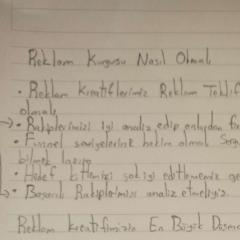 Reklam Kurgusu Nasıl Olmalı
• Reklam Kreatiflerimiz Reklam Teklif
olmalı
→ • Rakiplerimizi iyi analiz edip onlardan
• Funnel seviyelerine hakim olmalı
bilmek lazım
• Hedef kitlemizi
→ • Başarılı Rakiplerimizi analiz etmeliyiz.
Reklam kreatifimizin En Büyük